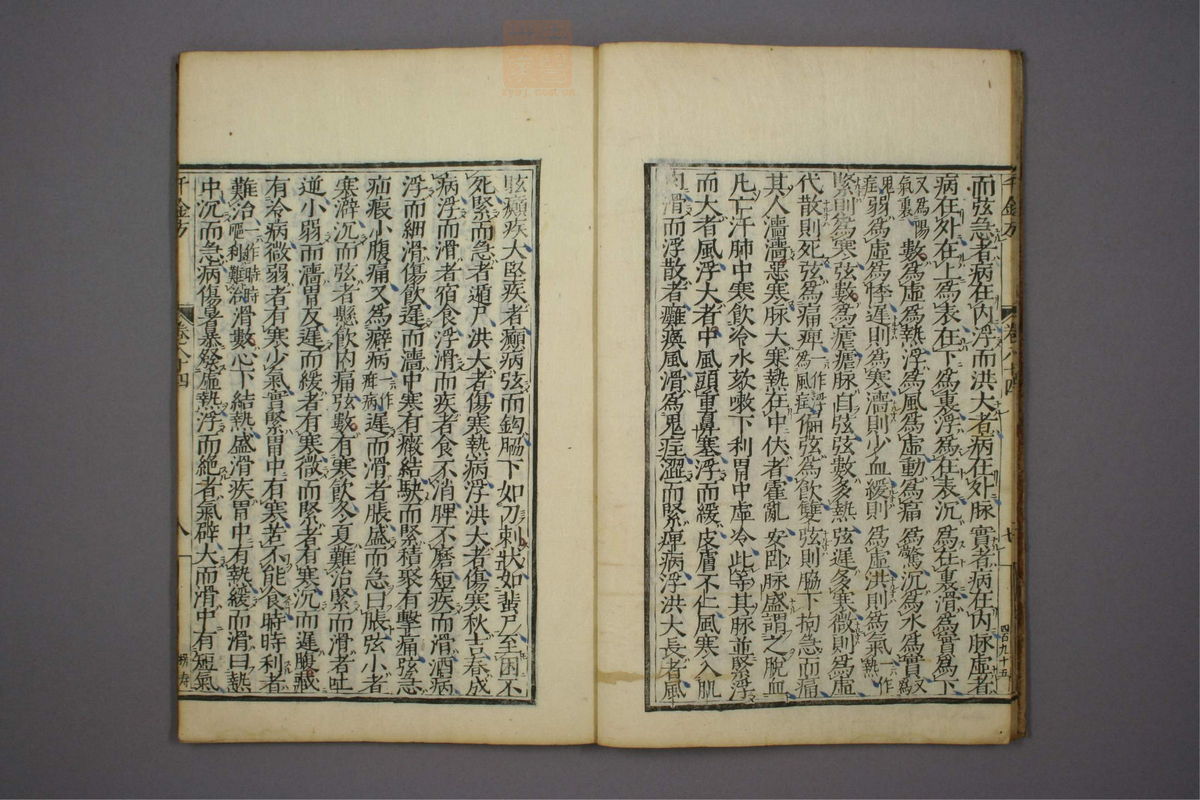 千金方
卷八十四
七
四百九十五
而弦急者病在内浮而洪大者病在外脉實者病在内脉虛者
病在外在上爲表在下爲裏浮爲在表沉爲在裏滑爲實爲下
又爲陽氣裏數爲虛爲熱浮爲風爲虛動爲痛爲驚沉爲水爲實又爲
鬼疰弱爲虛爲悸遲則爲寒濇則少血緩則爲虛洪則爲氣一作熱
緊則爲寒弦數爲瘧瘧脉自弦弦數多熱弦遲多寒微則爲虛
代散則死弦爲痛痺一作浮爲風疰偏弦爲飲雙弦則脇下拘急而痛
其人濇濇惡寒脉大寒熱在中伏者霍亂安卧脉盛謂之脫血
凡亡汗肺中寒飲冷水欬嗽下利胃中虛冷此等其脉並緊浮
而大者風浮大者中風頭重鼻塞浮而緩皮膚不仁風寒入肌
肉滑而浮散者癱瘓風滑爲鬼疰澀而緊痺病浮洪大長者風
眩癲疾大堅疾者癲病弦而鉤脇下如刀刺狀如蜚尸至困不
死緊而急者遁尸洪大者傷寒熱病浮洪大者傷寒秋吉春成
病浮而滑者宿食浮滑而疾者食不消脾不磨短疾而滑酒病
浮而細滑傷飲遲而濇中寒有癥結駃而緊積聚有擊痛弦急
疝瘕小腹痛又爲癖病一作痺病遲而滑者脹盛而急曰脹弦小者
寒澼沉而弦者懸飲内痛弦數有寒飲冬夏難治緊而滑者吐
逆小弱而濇胃反遲而緩者有寒微而緊者有寒沉而遲腹藏
有冷病微弱者有寒少氣實緊胃中有寒苦不能食時時利者
難治一作時時嘔利難治滑數心下結熱盛滑疾胃中有熱緩而滑曰熱
中沉而急病傷暑暴發虛熱浮而絶者氣辟大而滑中有短氣
千金方
卷八十四
八